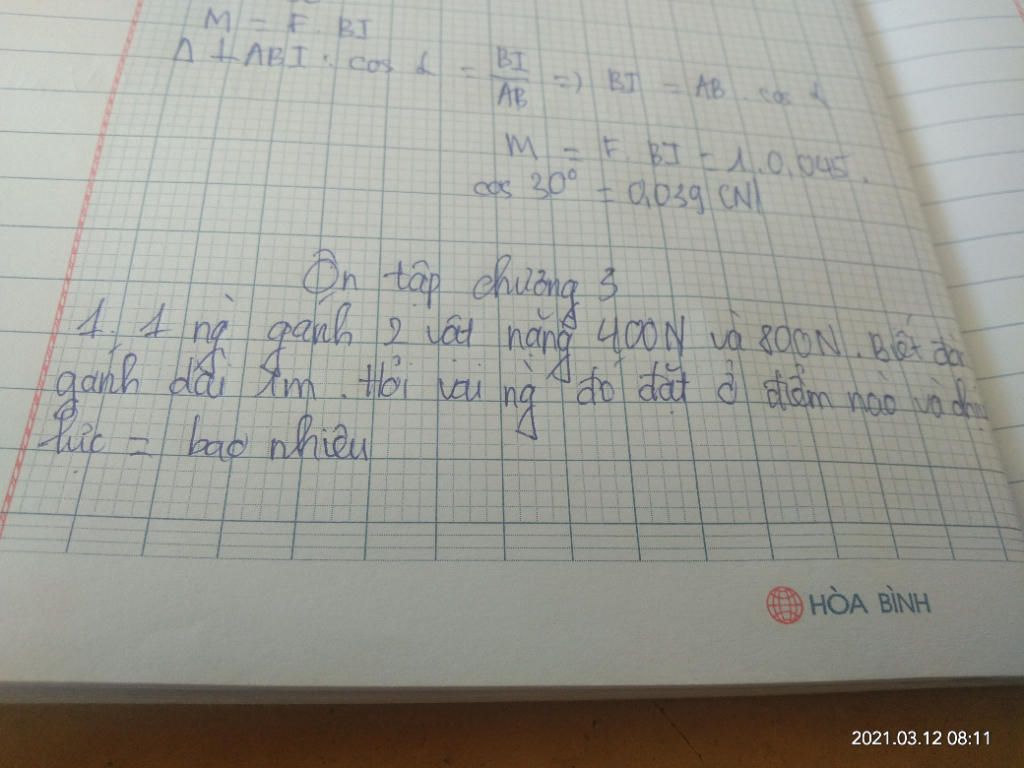 M = F. BI
Δ ⊥ ABI : cos α = BI/AB => BI = AB . cos α
M = F. BI = 1.0,045.
cos 30° = 0,039 (N)
Ôn tập chương 3
1. 1 ng` gánh 2 vật nặng 400N và 800N. Biết đòn
gánh dài 1m. Hỏi vai ng` đó đặt ở điểm nào và chịu
lực = bao nhiêu
HÒA BÌNH
2021.03.12 08:11